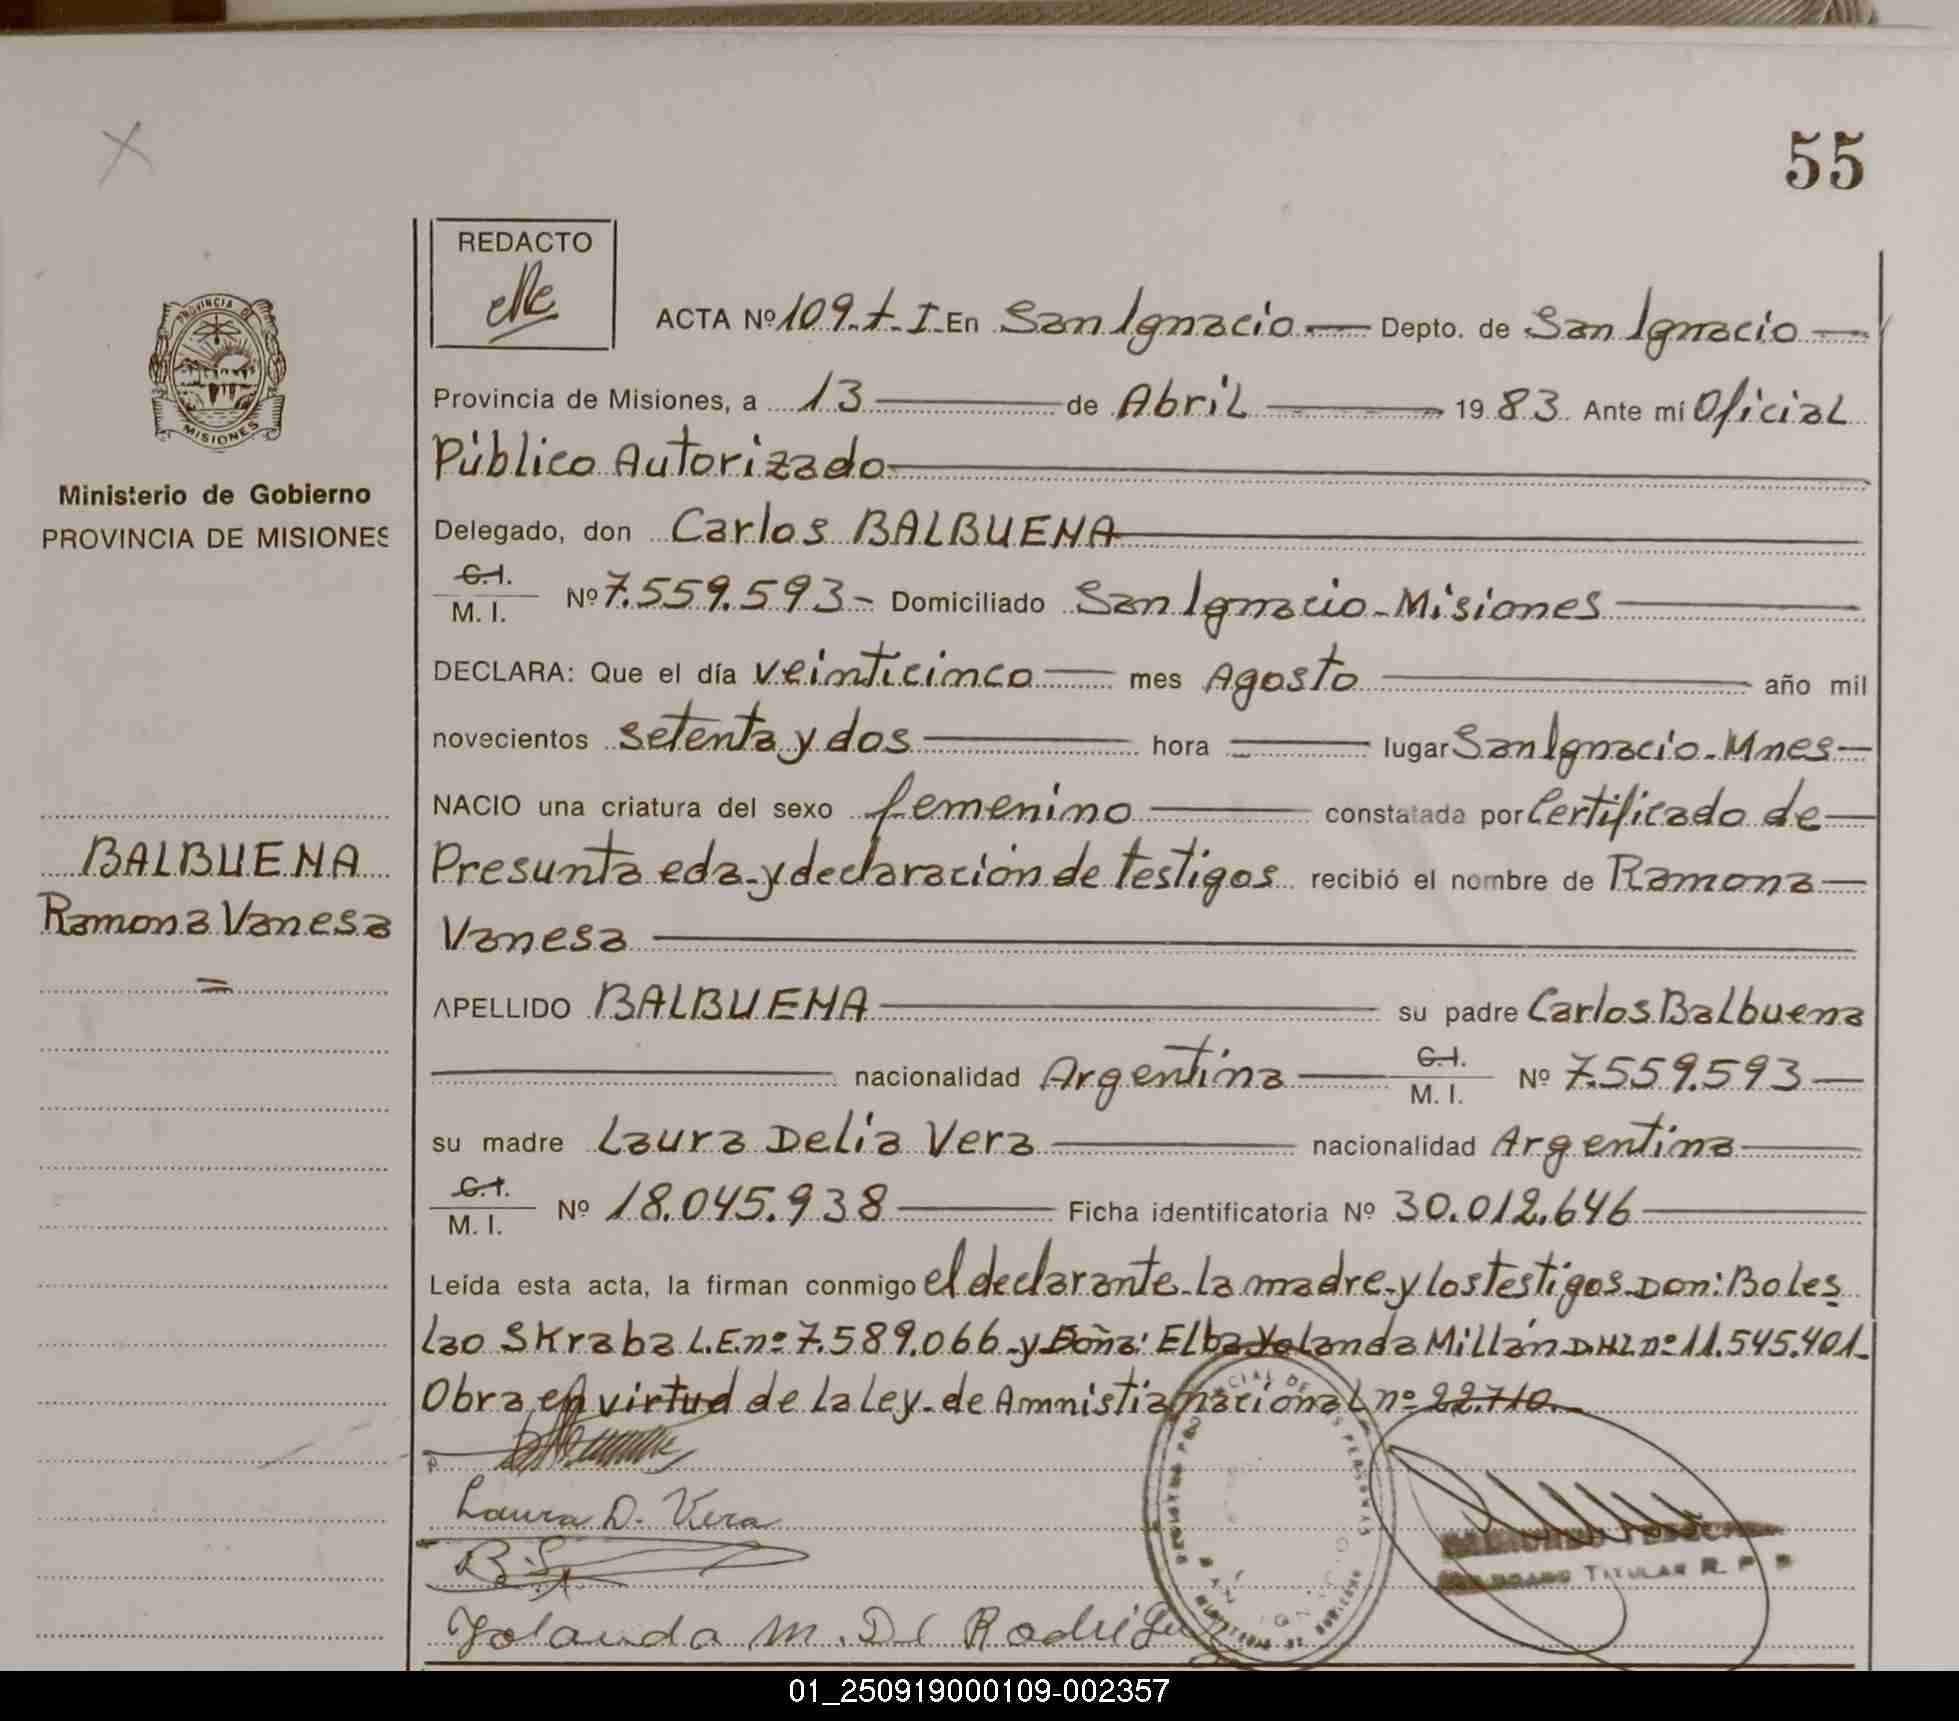 55
REDACTO
ACTA Nº 109.t.I. En San Ignacio Depto. de San Ignacio
Provincia de Misiones, a 13 de Abril 1983. Ante mí Oficial
Público Autorizado
Delegado, don Carlos BALBUENA
C.I. M. I. Nº 7.559.593 - Domiciliado San Ignacio - Misiones
DECLARA: Que el día veinticinco mes Agosto año mil
novecientos setenta y dos hora lugar San Ignacio - Mnes
NACIO una criatura del sexo femenino constatada por Certificado de
Presunta eda - y declaración de testigos recibió el nombre de Ramona
Vanesa
APELLIDO BALBUENA su padre Carlos Balbuena
nacionalidad Argentina C.I. M. I. Nº 7.559.593
su madre Laura Delia Vera nacionalidad Argentina
C.I. M. I. Nº 18.045.938 Ficha identificatoria Nº 30.012.646
Leída esta acta, la firman conmigo el declarante - la madre - y los testigos - Don: Boles
lao Skraba L.E. nº 7.589.066 - y Doña: Elba Yolanda Millán D.N.I. nº 11.545.401 -
Obra en virtud de la ley - de Amnistia nacional nº 22.710.
Laura D. Vera
Yolanda M. D
TITULAR R. P.
PROVINCIA DE
MISIONES
Ministerio de Gobierno
PROVINCIA DE MISIONES
BALBUENA
Ramona Vanesa
01_250919000109-002357